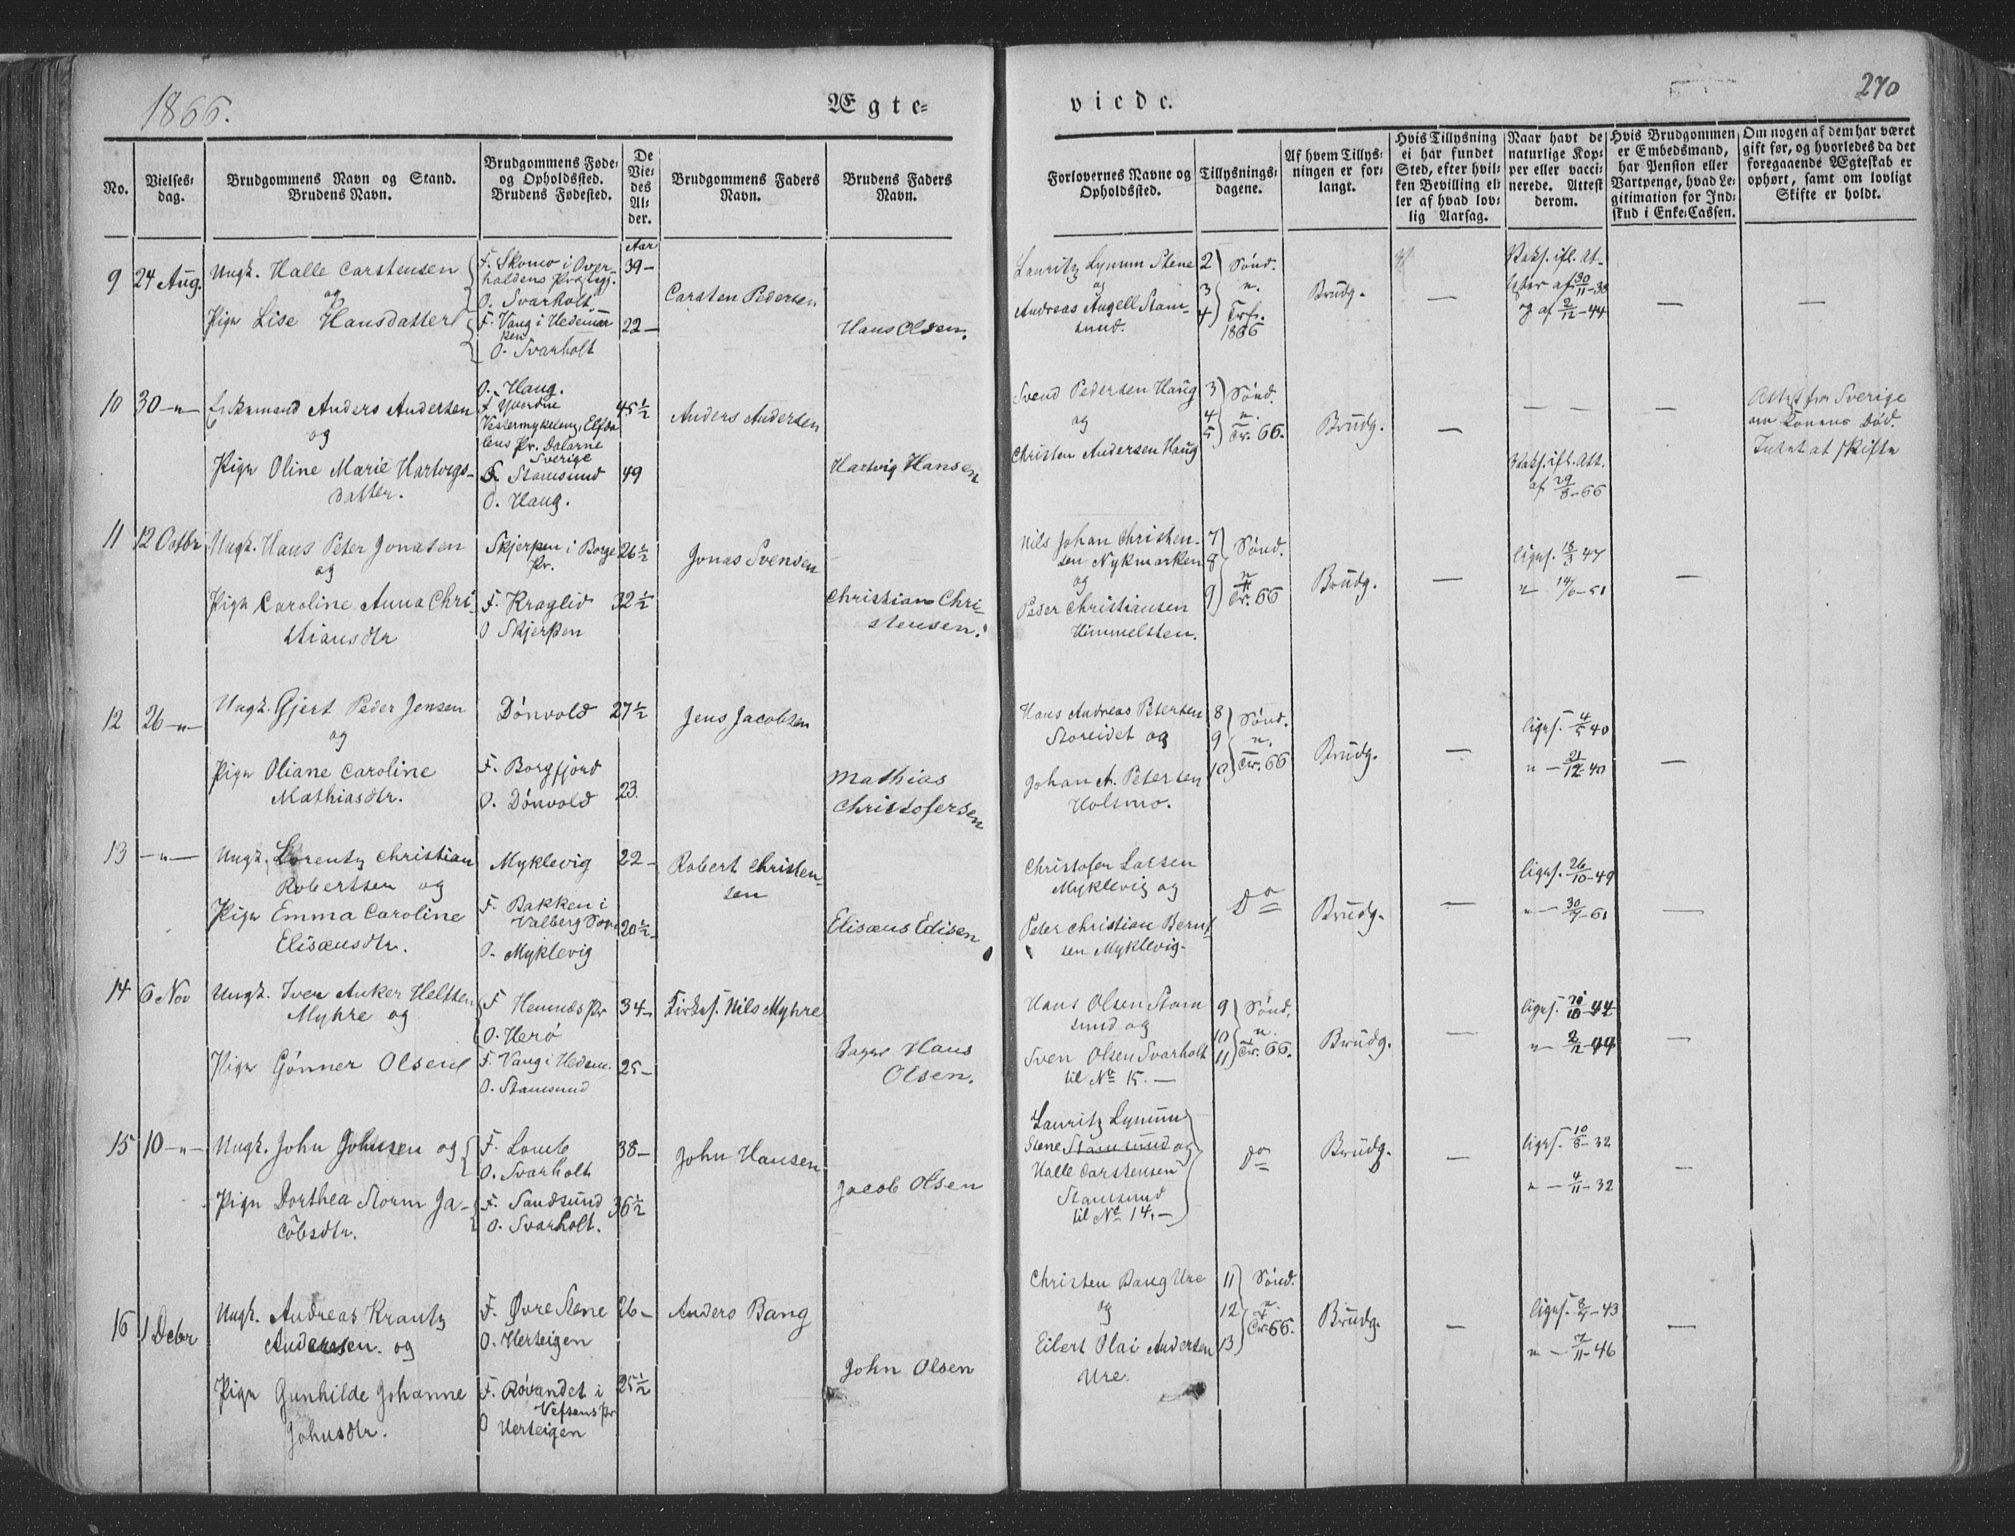 1866.
Ægte=
viede.
270
No.
Vielses=
dag.
Brudgommens Navn og Stand.
Brudens Navn.
Brudgommens Føde=
og Opholdssted.
Brudens Fødested.
De
Vie=
des
Al=
der.
Brudgommens Faders
Navn.
Brudens Faders
Navn.
Forlovernes Navne og
Opholdssted.
Tillysnings=
dagene.
Af hvem Tillys=
ningen er for=
langt.
Hvis Tillysning
ei har fundet
Sted, efter hvil=
ken Bevilling el=
ler af hvad lov=
lig Aarsag.
Naar havt de
naturlige Kop=
per eller vacci=
nerede. Attest
derom.
Hvis Brudgommen
er Embedsmand,
har Pension eller
Vartpenge, hvad Le=
gitimation for Ind=
skud i Enke=Cassen.
Om nogen af dem har været
gift før, og hvorledes da det
foregaaende Ægteskab er
ophørt, samt om lovligt
Skifte er holdt.
9
24 Aug.
Ungk. Halle Carstensen
og
Pige Lise Hansdatter
F. Skomo i Over-
haldens Prgj.
O. Svarholt
F. Vang i Hedemar
ken
O. Svarholt
Aar
39 —
22 —
Carsten Pedersen
Hans Olsen.
Lauritz Lynum Stene
og
Andreas Angell Stam-
sund.
2
3
4
Sønd.
n.
Trf.
1866
Brudg.
—
Vaks. ifl. At-
tester af 30/11-38
og af 2/12-44
—
—
10
30 -"-
Enkemand Anders Andersen
og
Pige Oline Marie Hartvigs-
datter.
O. Haug.
Vestermykeleng, Elfda
lens Pr. Dalarne
Sverige
F. Stamsund
O. Haug.
45 1/2
49
Anders Andersen
Hartvig Hansen
Svend Pedersen Haug
og
Christen Andersen Haug
3
4
5
Sønd.
n.
Tr. 66.
Brudg.
—
—
Vaks. ifl. Att.
af 29/8-66
—
Attest fra Sverige
om Konens Død.
Intet at skifte
11
12 Octbr
Ungk. Hans Peter Jonasen
og
Pige Caroline Anna Chri-
stiansdtr
Skjerpen i Borge
Pr.
F. Kraglid
O Skjerpen
26 1/2
32 1/2
Jonas Svensen
Christian Chri-
stensen.
Nils Johan Christen-
sen Nykmarken
og
Peder Christiansen
Himmelsten.
7
8
9
Sønd.
n
Tr. 66
Brudg.
—
liges. 18/3 47
" 14/6-51
—
12
26 -"-
Ungk. Gjert Peder Jensen
og
Pige Oliane Caroline
Mathiasdtr.
Dönvold
F. Borgfjord
O. Dönvold
27 1/2
23.
Jens Jacobsen
Mathias
Christofersen
Hans Andreas Petersen
Storeidet og
Johan A. Petersen
Holsmo.
8
9
10
Sønd.
n.
Tr. 66
Brudg.
—
ligs. 4/5 40
" — 21/12-40
—
13
— " —
Ungk. Lorentz Christian
Robertsen og
Pige Emma Caroline
Elisæusdtr.
Myklevig
F. Bakken i
Valberg Sovn
O. Myklevig
22 —
20 1/2
Robert Christen-
sen
Elisæus Edisen
Christofer Larsen
Myklevig og
Peter Christian Bernt
sen Myklevig.
Do
Brudg.
—
ligs. 26/10-49
" — 30/7-61
—
14
6 Nov
Ungk. Iver Anker Heltzen
Myhre og
Pige Gönner Olsen
F Hemnæs Pr
O. Herö
F. Vang i Hedem.
O. Stamsund
34 —
25 —
Kirkes. Nils Myhre
Hans
Olsen.
Hans Olsen Stam
sund og
Sven Olsen Svarholt
til No 15. —
9
10
11
Sønd.
n.
Tr. 66.
Brudg.
—
ligs. 20/10-42
" — 2/12-49
—
15
10 -"-
Ungk. John Johnsen og
Pige Dorthea Storm Ja-
cobsdtr.
F. Lomb
O. Svarholt
F. Sandsund
O. Svarholt.
38 —
36 1/2
John Hansen
Jacob Olsen
Lauritz Lynum
Stene Stamsund og
Halle Carstensen
Stamsund
til No 14. —
Do
Brudg.
—
ligs. 10/8-32
" — 4/11-32
—
16
1 Decbr
Ungk. Andreas Krantz
Anderssen. og
Pige Gunhilde Johanne
Johnsdtr.
F. Øvre Stene
O. Herteigen
F. Røvandet i
Vefsens Pr
O Herteigen
26 —
25 1/2
Anders Bang
John Olsen
Christen Bang Ure
og
Eilert Olai Andersen
Ure.
11
12
13
Sønd.
n.
Tr. 66.
Brudg.
—
ligs. 8/7-43
" — 7/11-46
—